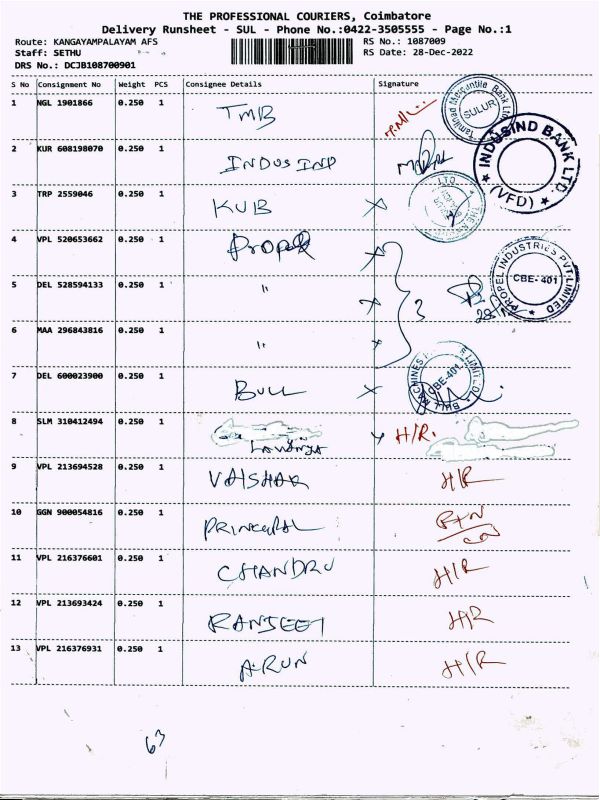 THE PROFESSIONAL COURIERS, Coimbatore
Delivery Runsheet - SUL - Phone No.:0422-3505555 - Page No.:1
Route: KANGAYAMPALAYAM AFS
RS No.: 1087009
Staff: SETHU
RS Date: 28-Dec-2022
DRS No.: DCJB108700901
S No Consignment No Weight PCS Consignee Details Signature
1 NGL 1901866 0.250 1 TMB
Tamilnad Mercantile Bank Ltd
SULUR
2 KUR 608198070 0.250 1 INDUSIND
INDUSIND BANK LTD.
(VFD)
3 TRP 2559046 0.250 1 KUB
LTD
4 VPL 520653662 0.250 1 Propel
PROPEL INDUSTRIES PVT. LIMITED
CBE- 401
5 DEL 528594133 0.250 1 "
3
6 MAA 296843816 0.250 1 "
7 DEL 600023900 0.250 1 BULL
CBE-401
8 SLM 310412494 0.250 1 H/R.
9 VPL 213694528 0.250 1 VAISHAK H/R
10 GGN 900054816 0.250 1 PRINCIPAL
11 VPL 216376601 0.250 1 CHANDRU H/R
12 VPL 213693424 0.250 1 RANJEET H/R
13 VPL 216376931 0.250 1 ARUN H/R
63